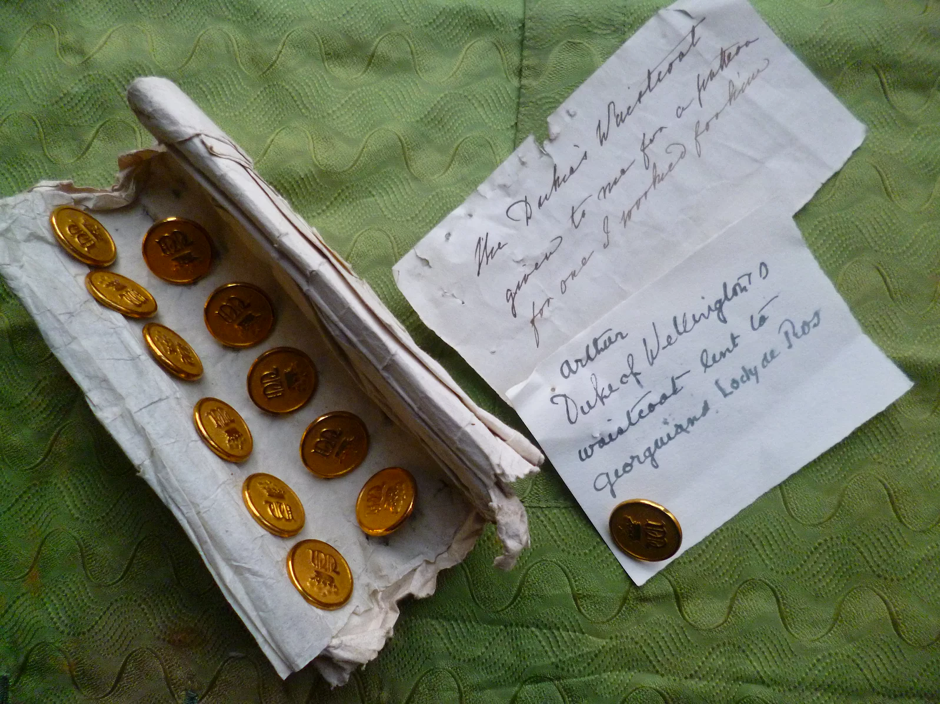 The Duke's Waistcoat
given to me for a pattern
for one I worked for him
arthur
Duke of Wellington
waistcoat lent to
georgiana Lady de Ros